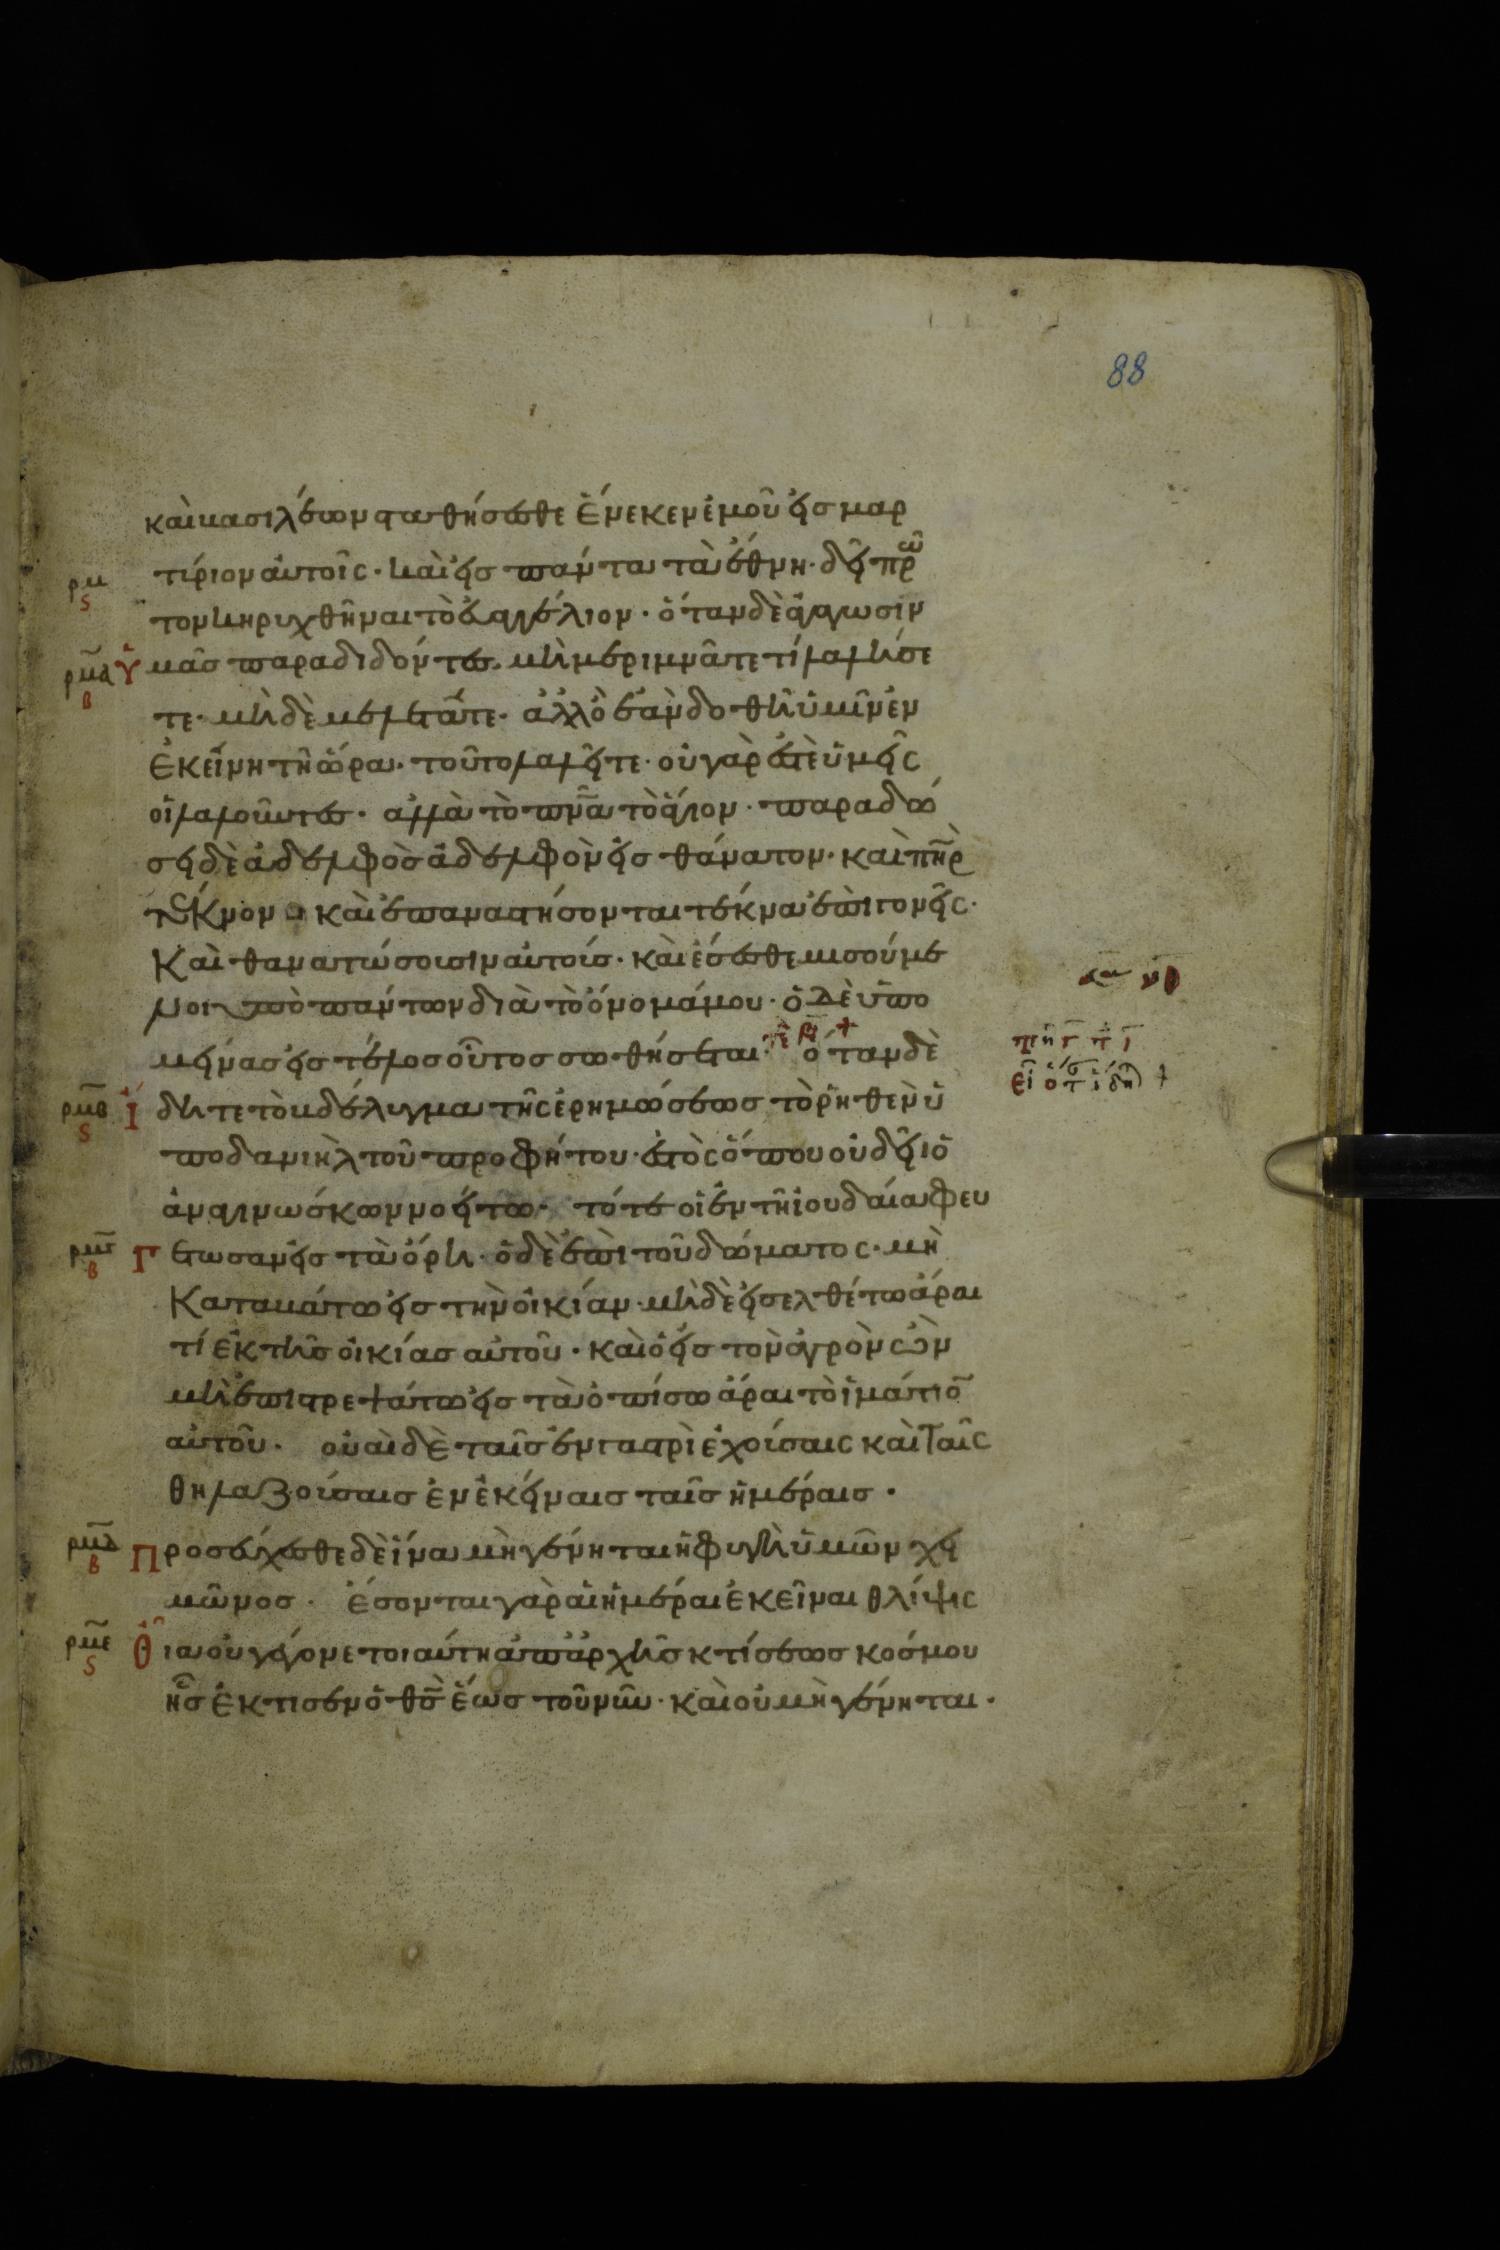 88
καὶ βασιλέων σταθήσεσθε ἕνεκεν ἐμοῦ εἰς μαρ
τίριον αὐτοῖς· καὶ εἰς πάντα τὰ ἔθνη· δεῖ πρῶ
τον κηρυχθῆναι τὸ εὐαγγέλιον· ὅταν δὲ ἄγωσιν
ὑμᾶς παραδιδόντες· μὴ μεριμνᾶτε τί λαλήσε
τε· μὴ δὲ μελετᾶτε· ἀλλ' ὃ ἐὰν δοθῆ ὑμῖν ἐν
ἐκείνη τῆ ὥρα· τοῦτο λαλεῖτε· οὐ γάρ ἐστε ὑμεῖς
οἱ λαλοῦντες· ἀλλὰ τὸ πν̅α τὸ ἅγιον· παραδώ
σει δὲ ἀδελφὸς ἀδελφὸν εἰς θάνατον· καὶ π̅η̅ρ
τέκνον καὶ ἐπαναστήσονται τέκνα ἐπὶ γονεῖς·
καὶ θανατώσουσιν αὐτούς· καὶ ἔσεσθε μισούμε
νοι ὑπὸ πάντων διὰ τὸ ὄνομά μου· ὁ δὲ ὑπο
μείνας εἰς τέλος οὗτος σωθήσεται· ὅταν δὲ
ἴδητε τὸ βδέλυγμα τῆς ἐρημώσεως τὸ ῥηθὲν ὑ
πὸ δανιὴλ τοῦ προφήτου· ἑστὸς ὅπου οὐ δεῖ ὁ
ἀναγινώσκων νοείτω· τότε οἱ ἐν τῆ ἰουδαία φευ
γέτωσαν εἰς τὰ ὄρη· ὁ δὲ ἐπὶ τοῦ δώματος· μὴ
καταβάτω εἰς τὴν οἰκίαν· μὴ δὲ εἰσελθέτω ἆραι
τί ἐκ τῆς οἰκίας αὐτοῦ· καὶ ὁ εἰς τὸν ἀγρὸν ὢν
μὴ ἐπιστρεψάτω εἰς τὰ ὀπίσω ἆραι τὸ ἱμάτιο̅
αὐτοῦ· οὐαὶ δὲ ταῖς ἐν γαστρὶ ἐχούσαις καὶ ταῖς
θηλαζούσαις ἐν ἐκείναις ταῖς ἡμέραις·
προσεύχεσθε δὲ ἵνα μὴ γένηται ἡ φυγὴ ὑμῶν χει
μῶνος· ἔσονται γὰρ αἱ ἡμέραι ἐκεῖναι θλίψις
οἵα οὐ γέγονε τοιαύτη ἀπ' ἀρχῆς κτίσεως κόσμου
ἧς ἔκτισεν ὁ θ̅ς ἕως τοῦ νῦν· καὶ οὐ μὴ γένηται·
ρμ
ϛ
ρμα
β
ρμβ
ϛ
ρμγ
β
ρμδ
β
ρμε
ϛ